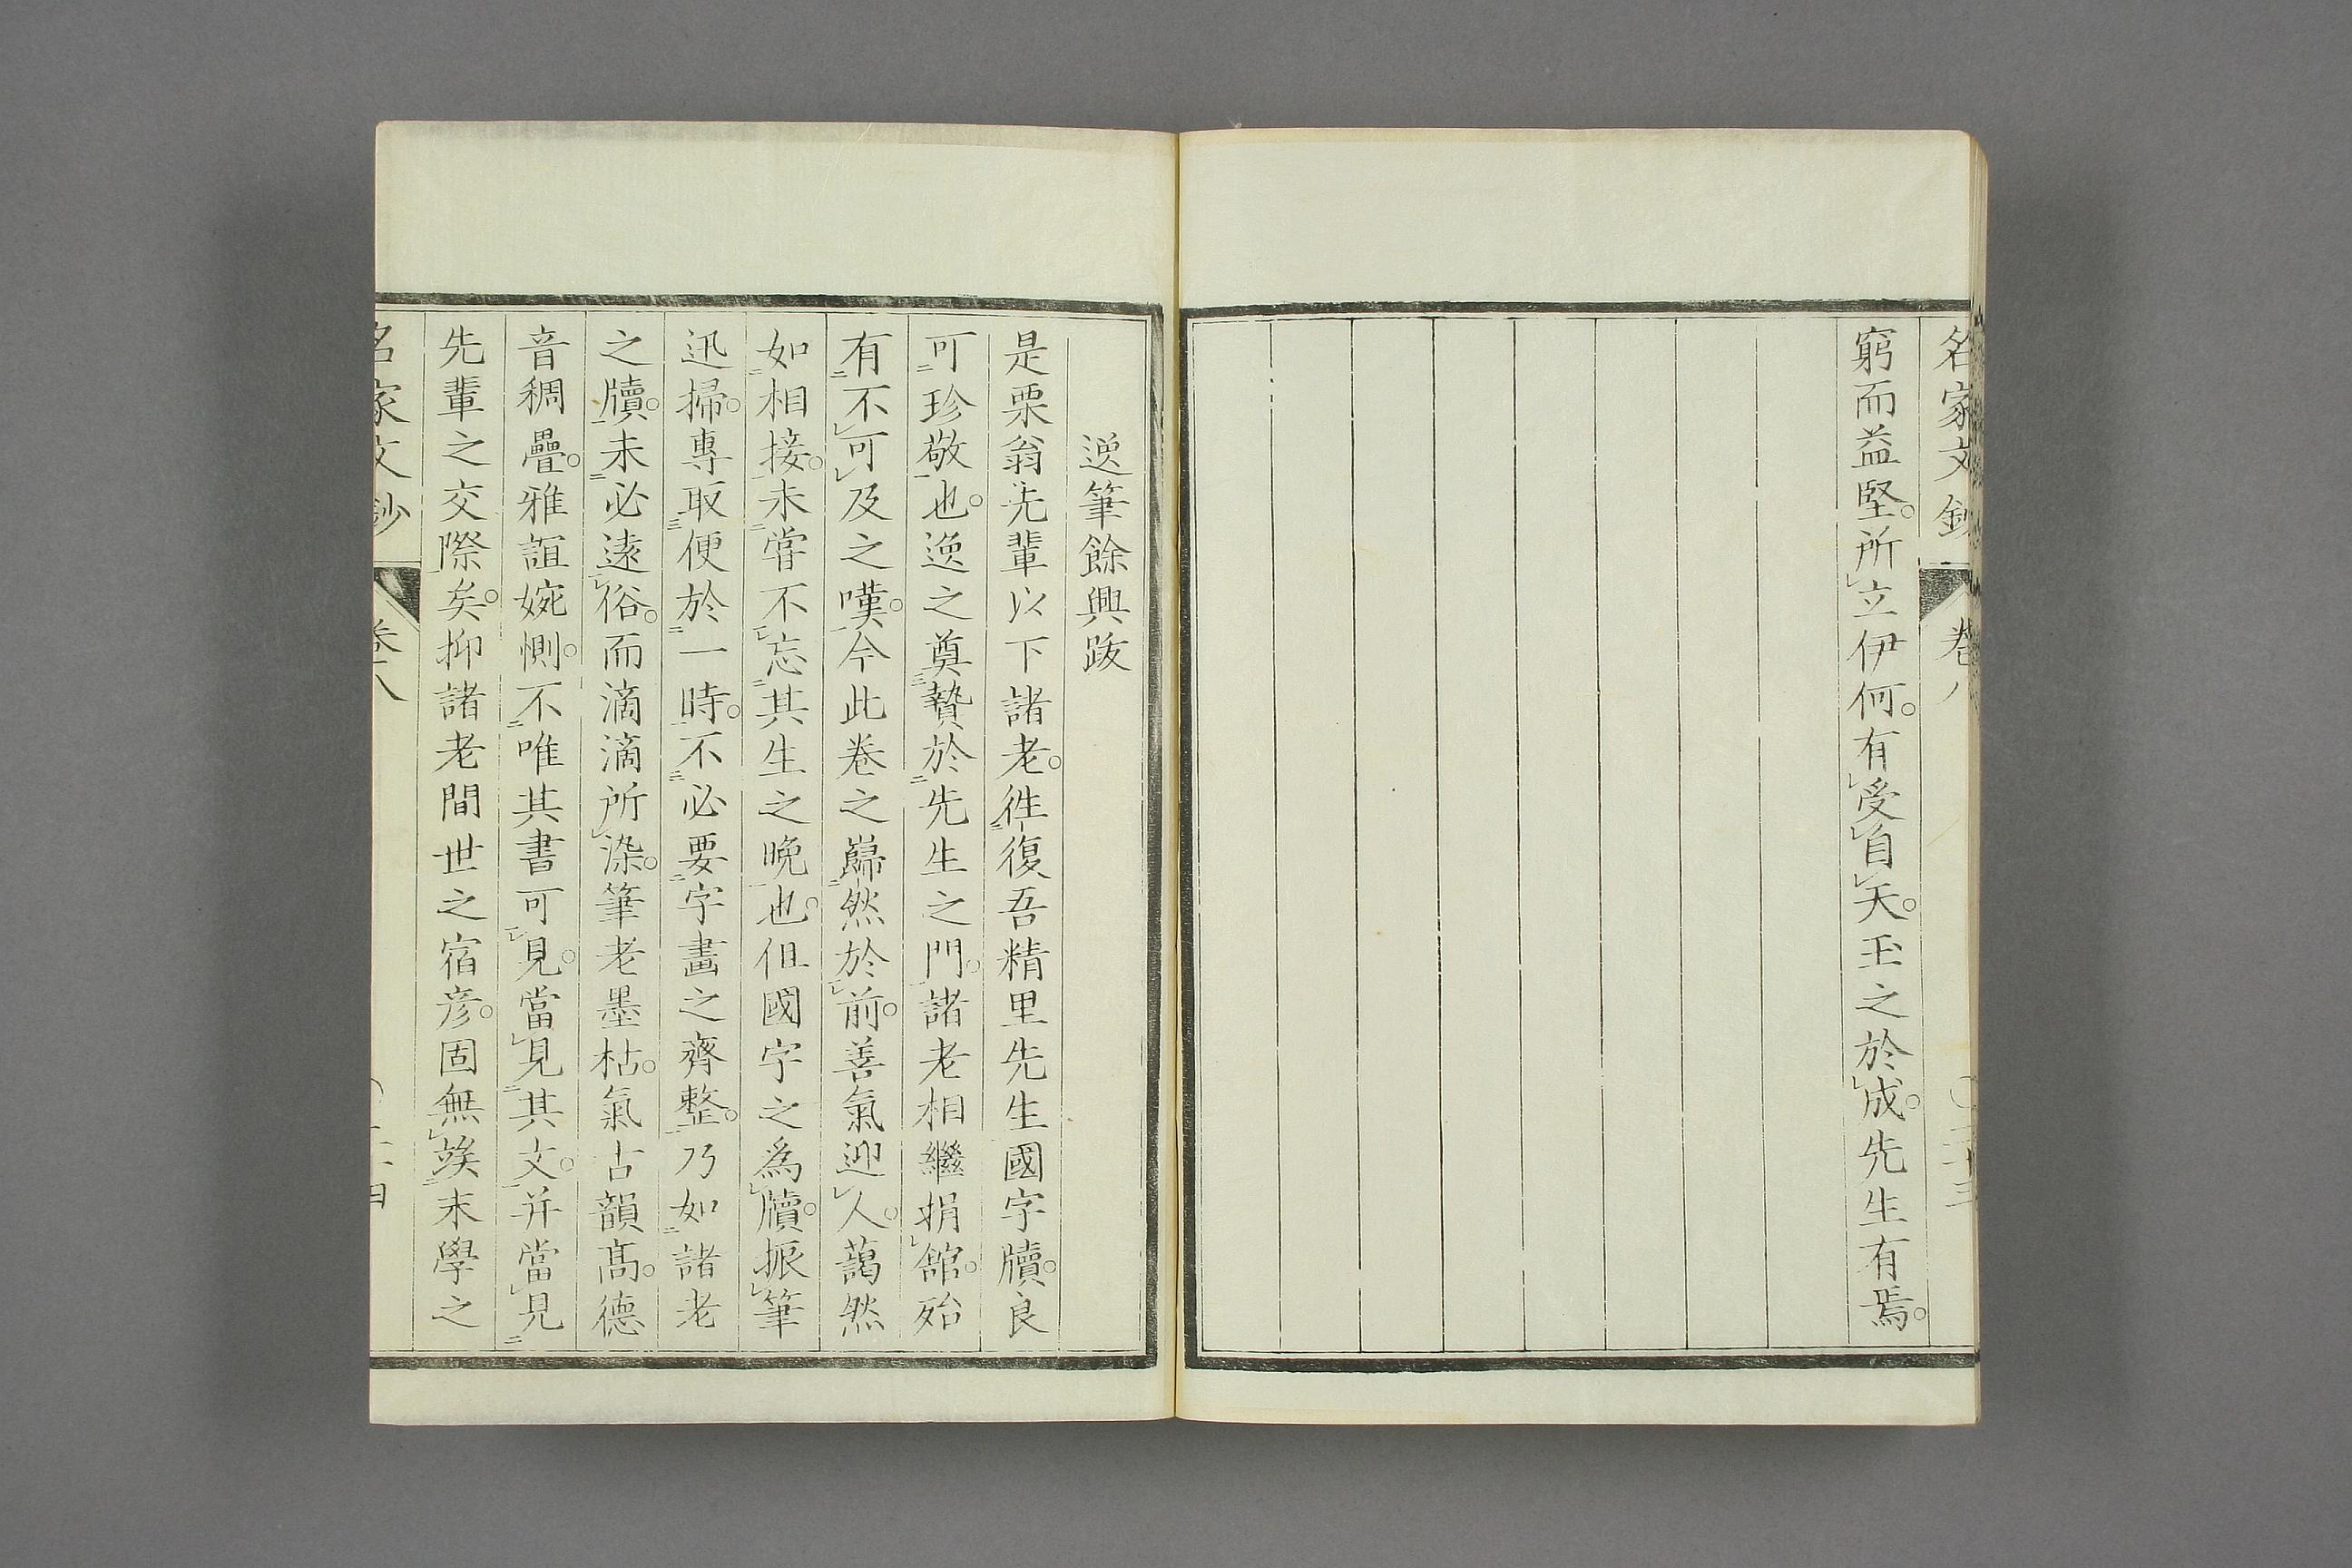 名家文鈔 卷八 〇二十三
窮而益堅。所立伊何。有受自天。玉之於成。先生有焉。
逸筆餘興跋
是栗翁先輩以下諸老。往復吾精里先生國字牘。良
可珍敬也。逸之奠贄於先生之門。諸老相繼捐館。殆
有不可及之嘆。今此卷之巋然於前。善氣迎人。藹然
如相接。未嘗不忘其生之晚也。但國字之爲牘。振筆
迅掃。專取便於一時。不必要字畫之齊整。乃如諸老
之牘。未必遠俗。而滴滴所染。筆老墨枯。氣古韻高。德
音稠疊。雅誼婉惻。不唯其書可見。當見其文。并當見
先輩之交際矣。抑諸老間世之宿彥。固無俟末學之
名家文鈔 卷八